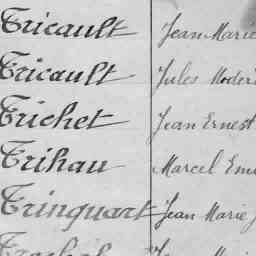 Tricault Jean Marie
Tricault Jules Moder
Trichet Jean Ernest
Trihau Marcel Emi
Trinquart Jean Marie J